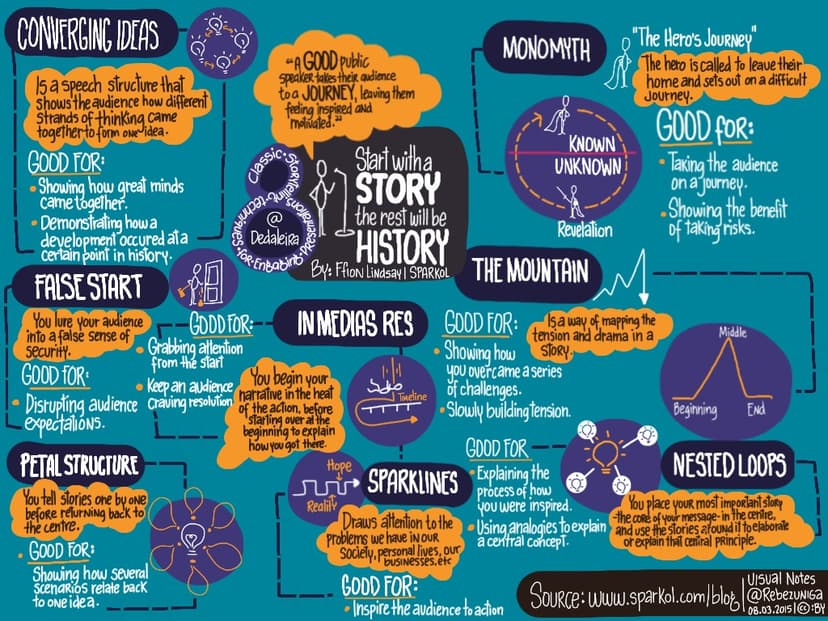 CONVERGING IDEAS
Is a speech structure that
shows the audience how different
strands of thinking came
together to form one idea.
GOOD FOR:
• Showing how great minds
came together.
• Demonstrating how a
development occured at a
certain point in history.
"A GOOD public
speaker takes their audience
to a JOURNEY, leaving them
feeling inspired and
motivated."
Classic Storytelling Techniques
for Engaging Presentations
@
Dedaleira
Start with a
STORY
the rest will be
HISTORY
By: Ffion Lindsay | SPARKOL
MONOMYTH
"The Hero's Journey"
The hero is called to leave their
home and sets out on a difficult
journey.
KNOWN
UNKNOWN
Revelation
GOOD for:
• Taking the audience
on a journey.
• Showing the benefit
of taking risks.
FALSE START
You lure your audience
into a false sense of
security.
GOOD FOR:
• Disrupting audience
expectations.
IN MEDIAS RES
GOOD FOR:
• Grabbing attention
from the start
• Keep an audience
craving resolution
You begin your
narrative in the heat
of the action, before
starting over at the
beginning to explain
how you got there.
Timeline
THE MOUNTAIN
Is a way of mapping the
tension and drama in a
story.
GOOD FOR:
• Showing how
you overcame a series
of challenges.
• Slowly building tension.
Middle
Beginning
End
PETAL STRUCTURE
You tell stories one by one
before returning back to
the centre.
• GOOD FOR:
Showing how several
scenarios relate back
to one idea.
Hope
Reality
SPARKLINES
Draws attention to the
problems we have in our
society, personal lives, our
businesses, etc
GOOD FOR:
• Inspire the audience to action
NESTED LOOPS
GOOD FOR
• Explaining the
process of how
you were inspired.
• Using analogies to explain
a central concept.
You place your most important story
-the core of your message- in the centre,
and use the stories around it to elaborate
or explain that central principle.
Source: www.sparkol.com/blog
Visual Notes
@Rebezuniga
08.03.2015 | © :BY